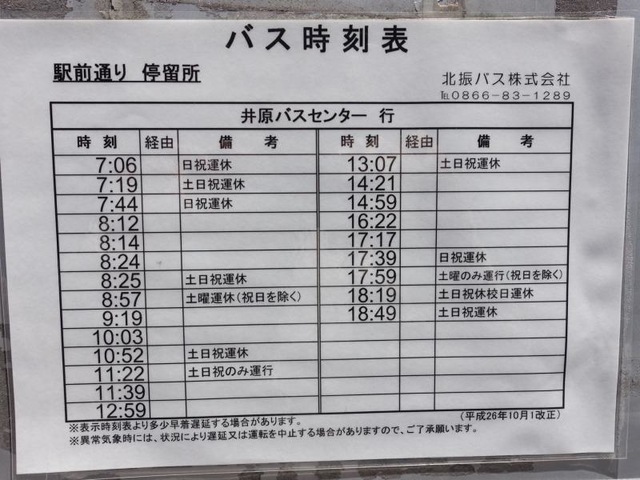 バス時刻表
駅前通り 停留所
北振バス株式会社
℡0866-83-1289
井原バスセンター 行
時刻 経由 備考 時刻 経由 備考
7:06 日祝運休 13:07 土日祝運休
7:19 土日祝運休 14:21
7:44 日祝運休 14:59
8:12 16:22
8:14 17:17
8:24 17:39 日祝運休
8:25 土日祝運休 17:59 土曜のみ運行(祝日を除く)
8:57 土曜運休(祝日を除く) 18:19 土日祝休校日運休
9:19 18:49 土日祝運休
10:03
10:52 土日祝運休
11:22 土日祝のみ運行
11:39
12:59
(平成26年10月1改正)
※表示時刻表より多少早着遅延する場合があります。
※異常気象時には、状況により遅延又は運転を中止する場合がありますので、ご了承願います。